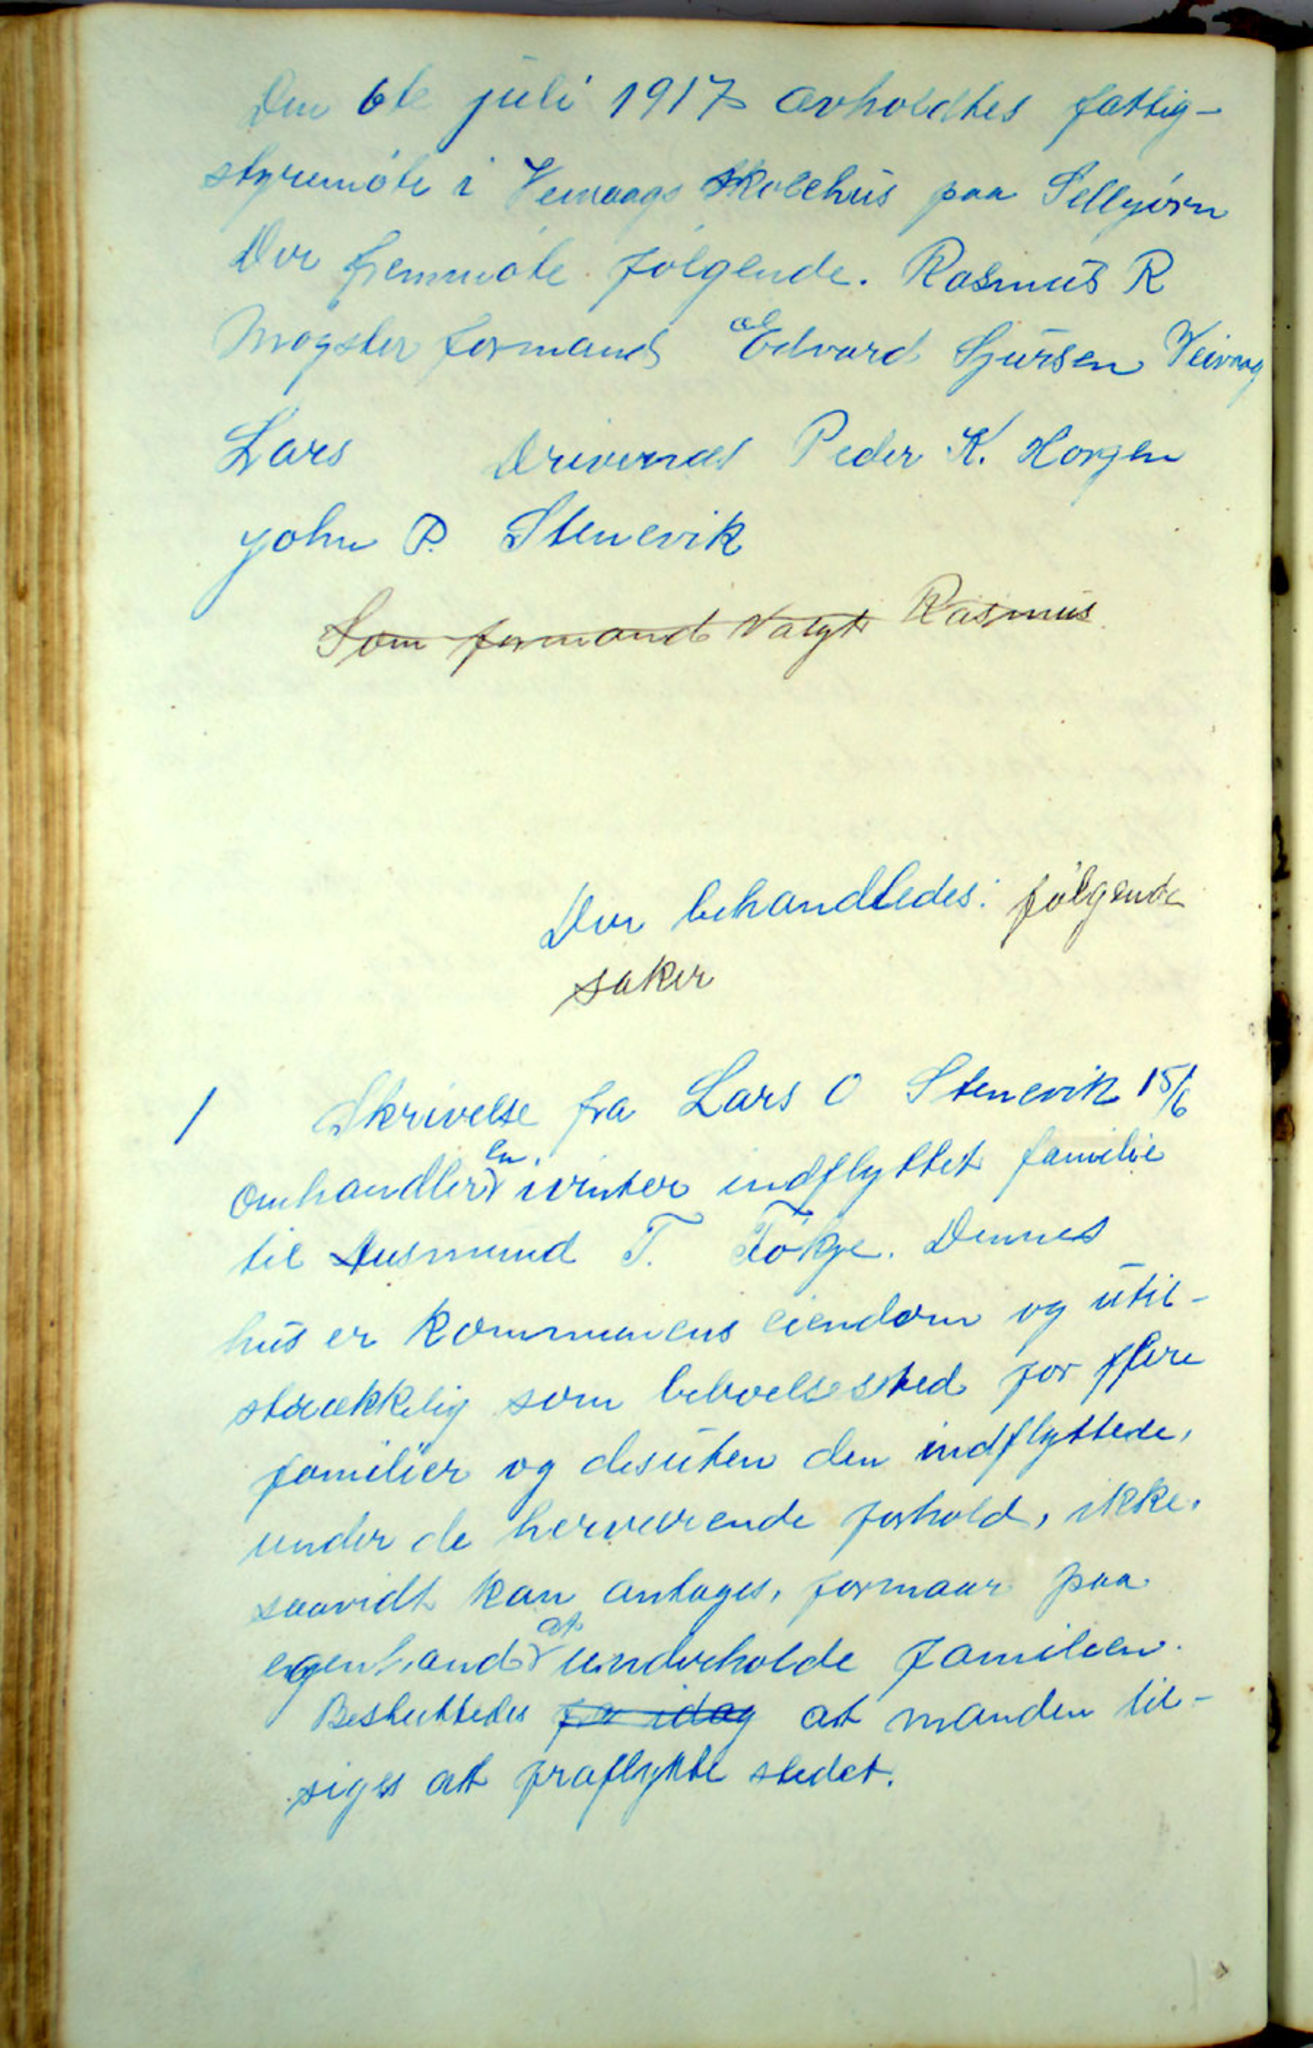 Den 6te juli 1917 avholdtes fattig-
styremöte i Veivaags Skolehus paa Selbjörn
Der fremmøte følgende. Rasmus R
Møgster formand Edvard Sjursen Veivaag
Lars Drivenæs Peder K. Horgen
John P. Stenevik
Som formand valgt Rasmus
Der behandledes: følgende
saker
1 Skrivelse fra Lars O Stenevik 15/6
omhandler en ivinter indflyttet familie
til Ausmund T. Tökje. Dennes
hus er kommunens eiendom og util-
strækkelig som beboelsessted for flere
familier og desuten den indflyttede,
under de herværende forhold, ikke,
saavidt kan antages, formaar paa
egenhand at underholde familien.
Besluttedes fra idag at manden til-
siges at fraflytte stedet.